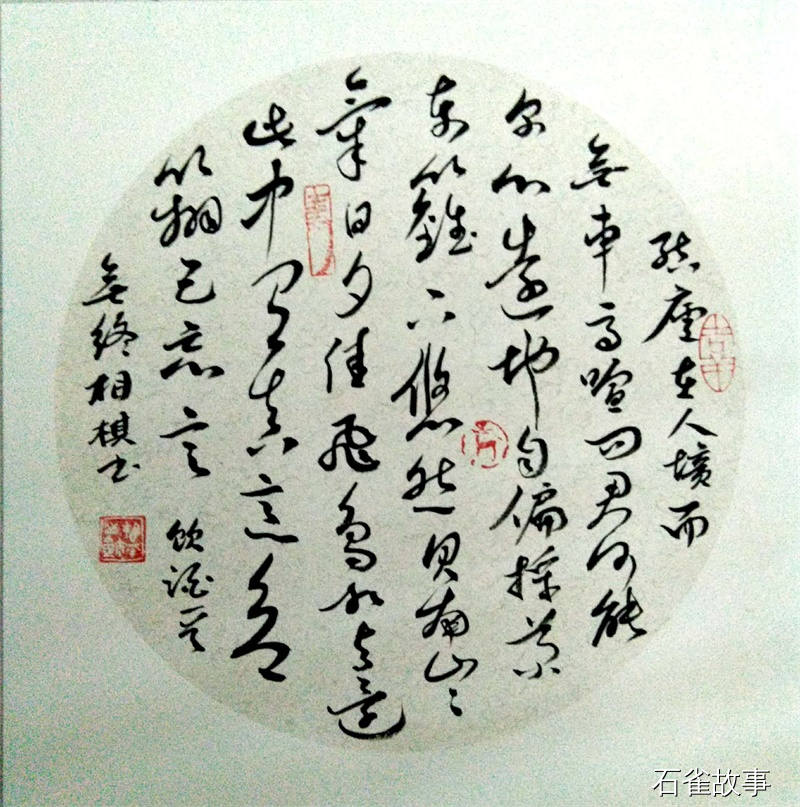 結廬在人境而
無車馬喧問君何能
尔心遠地自偏採菊
東籬下悠然見南山ミ
氣日夕佳飛鳥相與還
此中有真意欲
辨已忘言 飲酒
無終相棋书
石雀故事